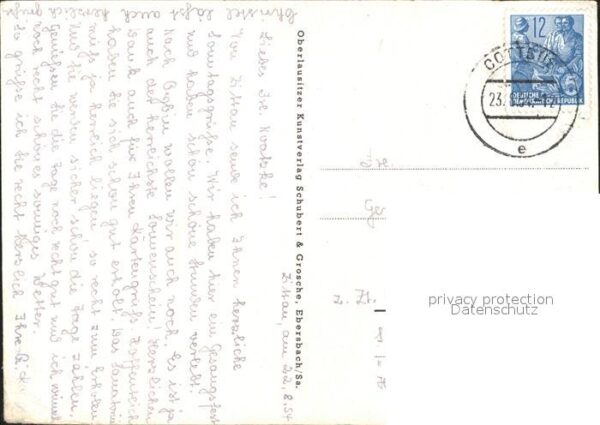 Christel läßt auch herzlich
Zittau, am 22.8.54
Liebes Frl. Noatzke!
Von Zittau sende ich Ihnen herzliche
Sonntagsgrüße. Wir haben hier ein Gesangsfest
und haben schon schöne Stunden verlebt.
Nach Oybin wollen wir auch noch. Es ist ja
auch der herrlichste Sonnenschein! Herzlichen
Dank auch für Ihren Kartengruß. Hoffentlich
haben Sie sich schon gut erholt! Das Sanatorium
muß ja herrlich liegen, so recht zum Erholen
Und Sie werden sicher schon die Tage zählen.
Genießen Sie die Tage noch recht gut und ich wünsche
noch recht schönes sonniges Wetter.
So grüße ich Sie recht herzlich Ihre
Oberlausitzer Kunstverlag Schubert & Grosche, Ebersbach/Sa.
12
DEUTSCHE
DEMOKRATISCHE REPUBLIK
COTTBUS
23.
e
privacy protection
Datenschutz